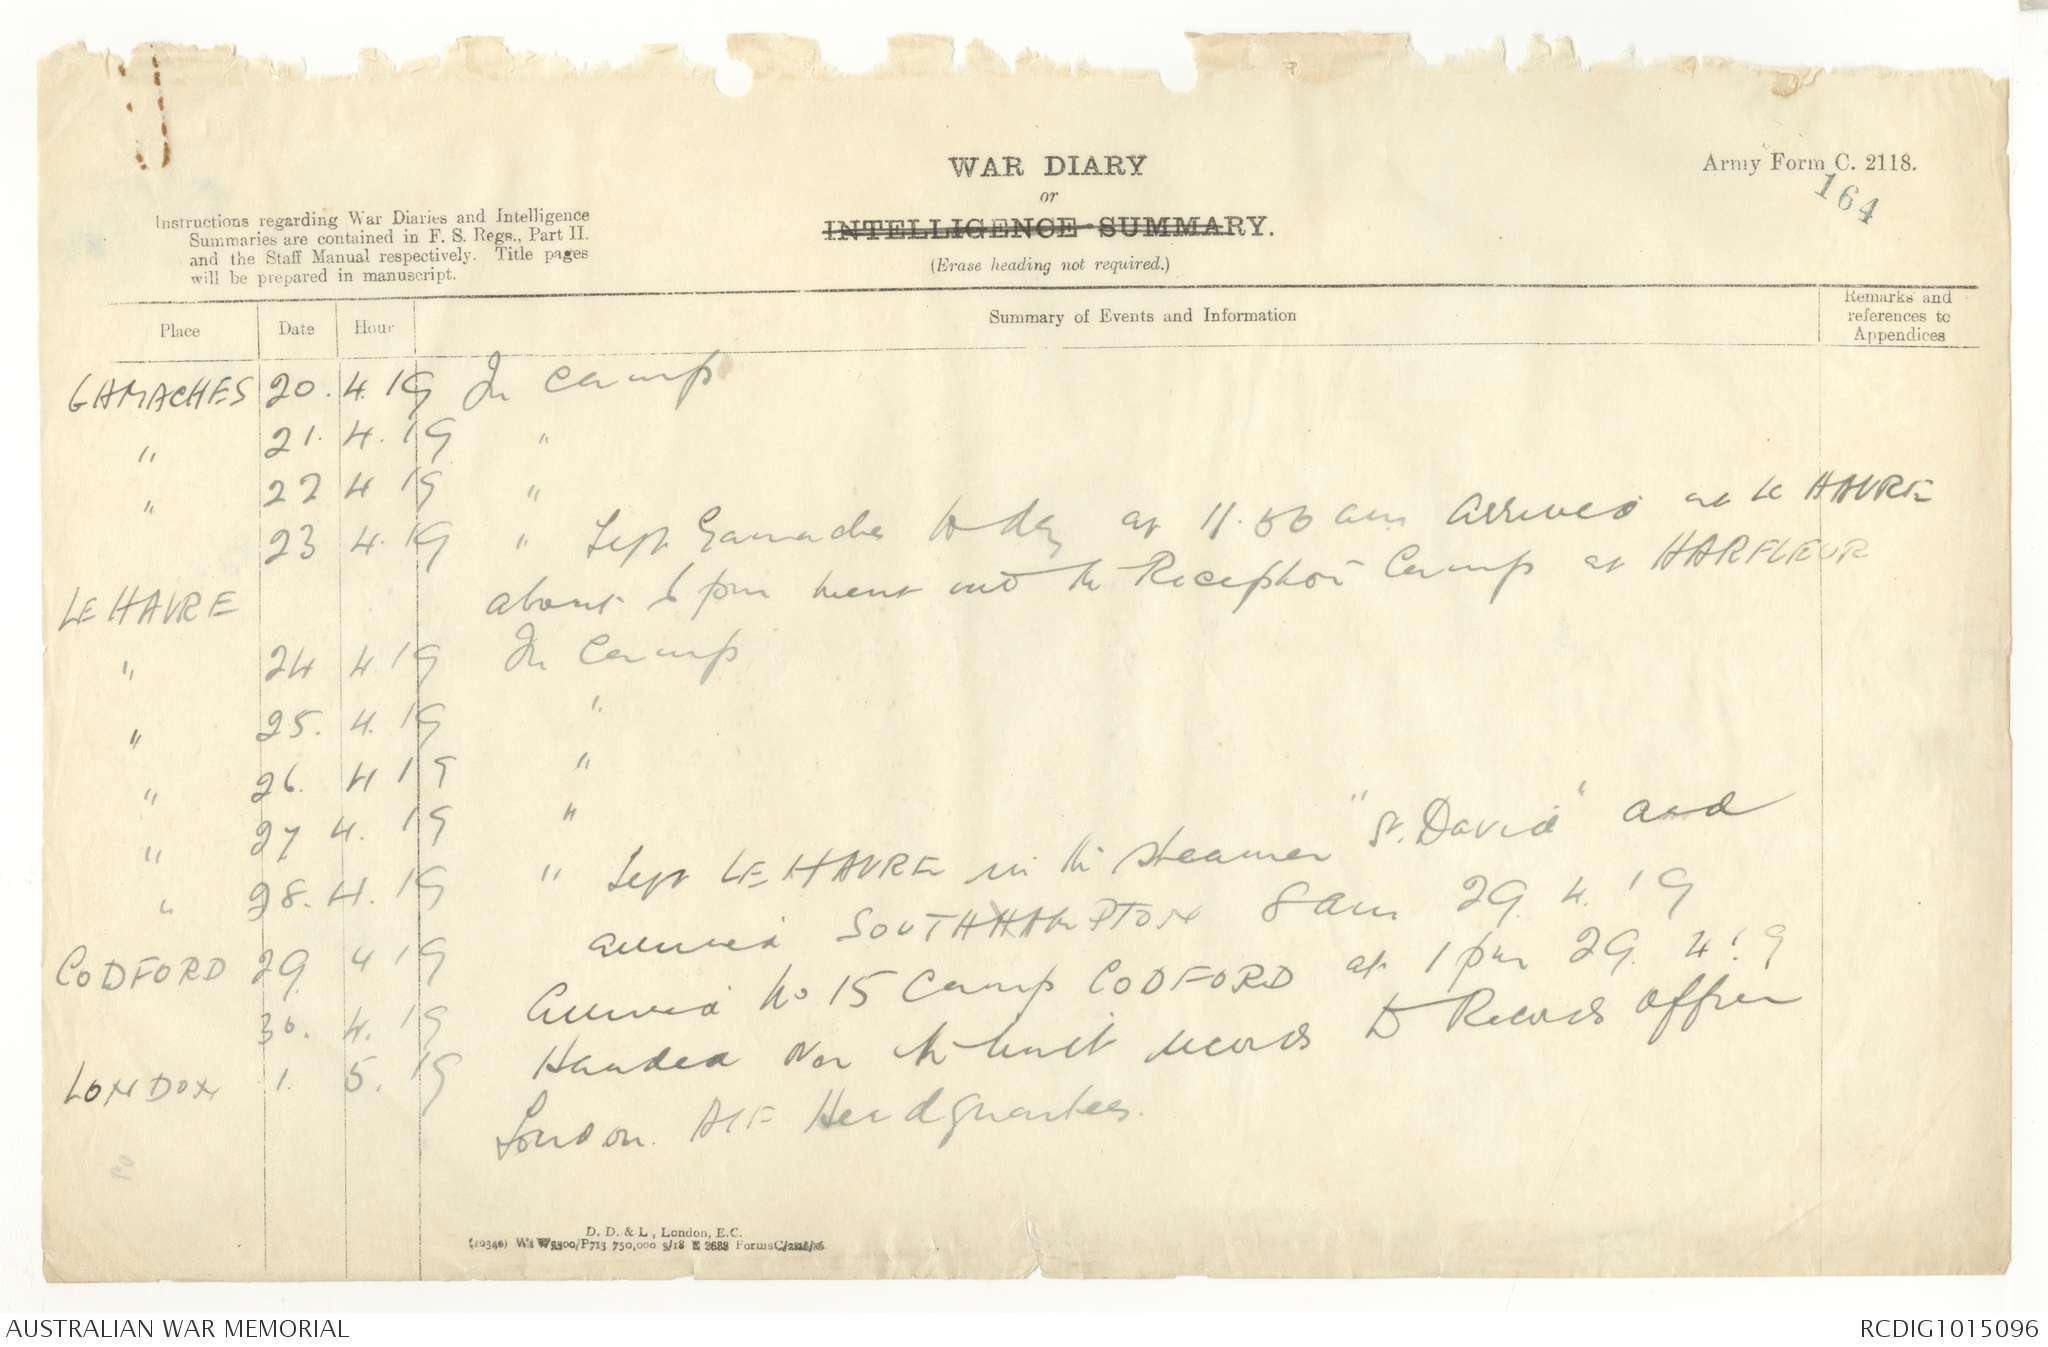 WAR DIARY
or
INTELLIGENCE SUMMARY.
(Erase heading not required.)
Army Form C. 2118.
164
Instructions regarding War Diaries and Intelligence
Summaries are contained in F. S. Regs., Part II.
and the Staff Manual respectively. Title pages
will be prepared in manuscript.
Place Date Hour Summary of Events and Information Remarks and
references to
Appendices
GAMACHES 20. 4. 19 In camp
" 21. 4. 19 "
" 22 4 19 "
23 4. 19 " Left Gamaches today at 11. am arrived at Le HAVRE
LE HAVRE about 6 pm went into the Reception Camp at HARFLEUR
" 24 4. 19 In Camp
" 25. 4. 19 "
" 26. 4 19 "
" 27 4. 19 "
" 28. 4. 19 " Left LE HAVRE in the steamer "St. David" and
arrived SOUTHHAMPTON 8 am 29. 4. 19
CODFORD 29. 4 19 Arrived No 15 Camp CODFORD at 1 pm 29. 4. 19
30. 4. 19
LONDON 1. 5. 19 Handed over the unit records to Records Officer
London. AIF Headquarters.
D. D. & L., London, E.C.
(10340) Wt W5300/P713 750,000 3/18 E 2688 Forms
AUSTRALIAN WAR MEMORIAL
RCDIG1015096